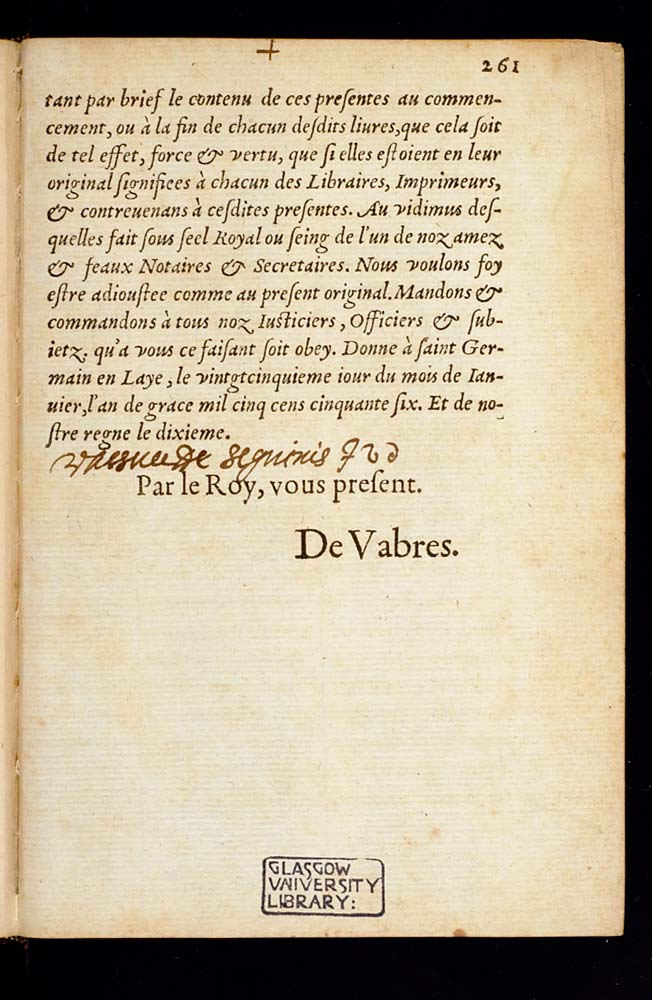 261
tant par brief le contenu de ces preſentes au commen-
cement, ou à la fin de chacun deſdits liures, que cela ſoit
de tel effet, force & vertu, que ſi elles eſtoient en leur
original ſignifiees à chacun des Libraires, Imprimeurs,
& contreuenans à ceſdites preſentes. Au vidimus deſ-
quelles fait ſous ſeel Royal ou ſeing de l'un de noz amez
& feaux Notaires & Secretaires. Nous voulons foy
eſtre adiouſtee comme au preſent original. Mandons &
commandons à tous noz Iuſticiers, Officiers & ſub-
ietz, qu'a vous ce faiſant ſoit obey. Donne à ſaint Ger-
main en Laye, le vintgtcinquieme iour du mois de Ian-
uier, l'an de grace mil cinq cens cinquante ſix. Et de no-
ſtre regne le dixieme.
Par le Roy, vous preſent.
De Vabres.
GLASGOW
VNIVERSITY
LIBRARY: